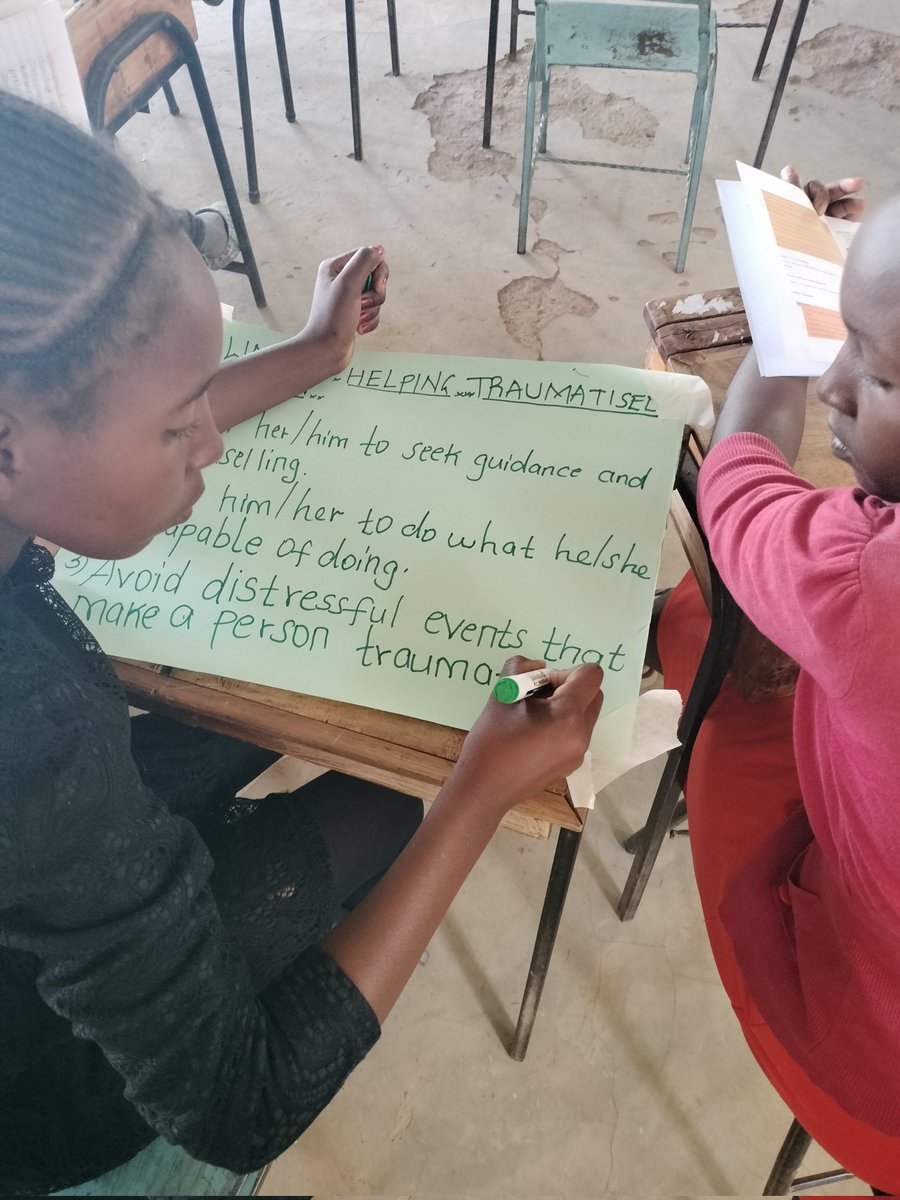 HELPING TRAUMATISED
her/him to seek guidance and
selling.
him/her to do what he/she
apable of doing.
3) Avoid distressful events that
make a person trauma